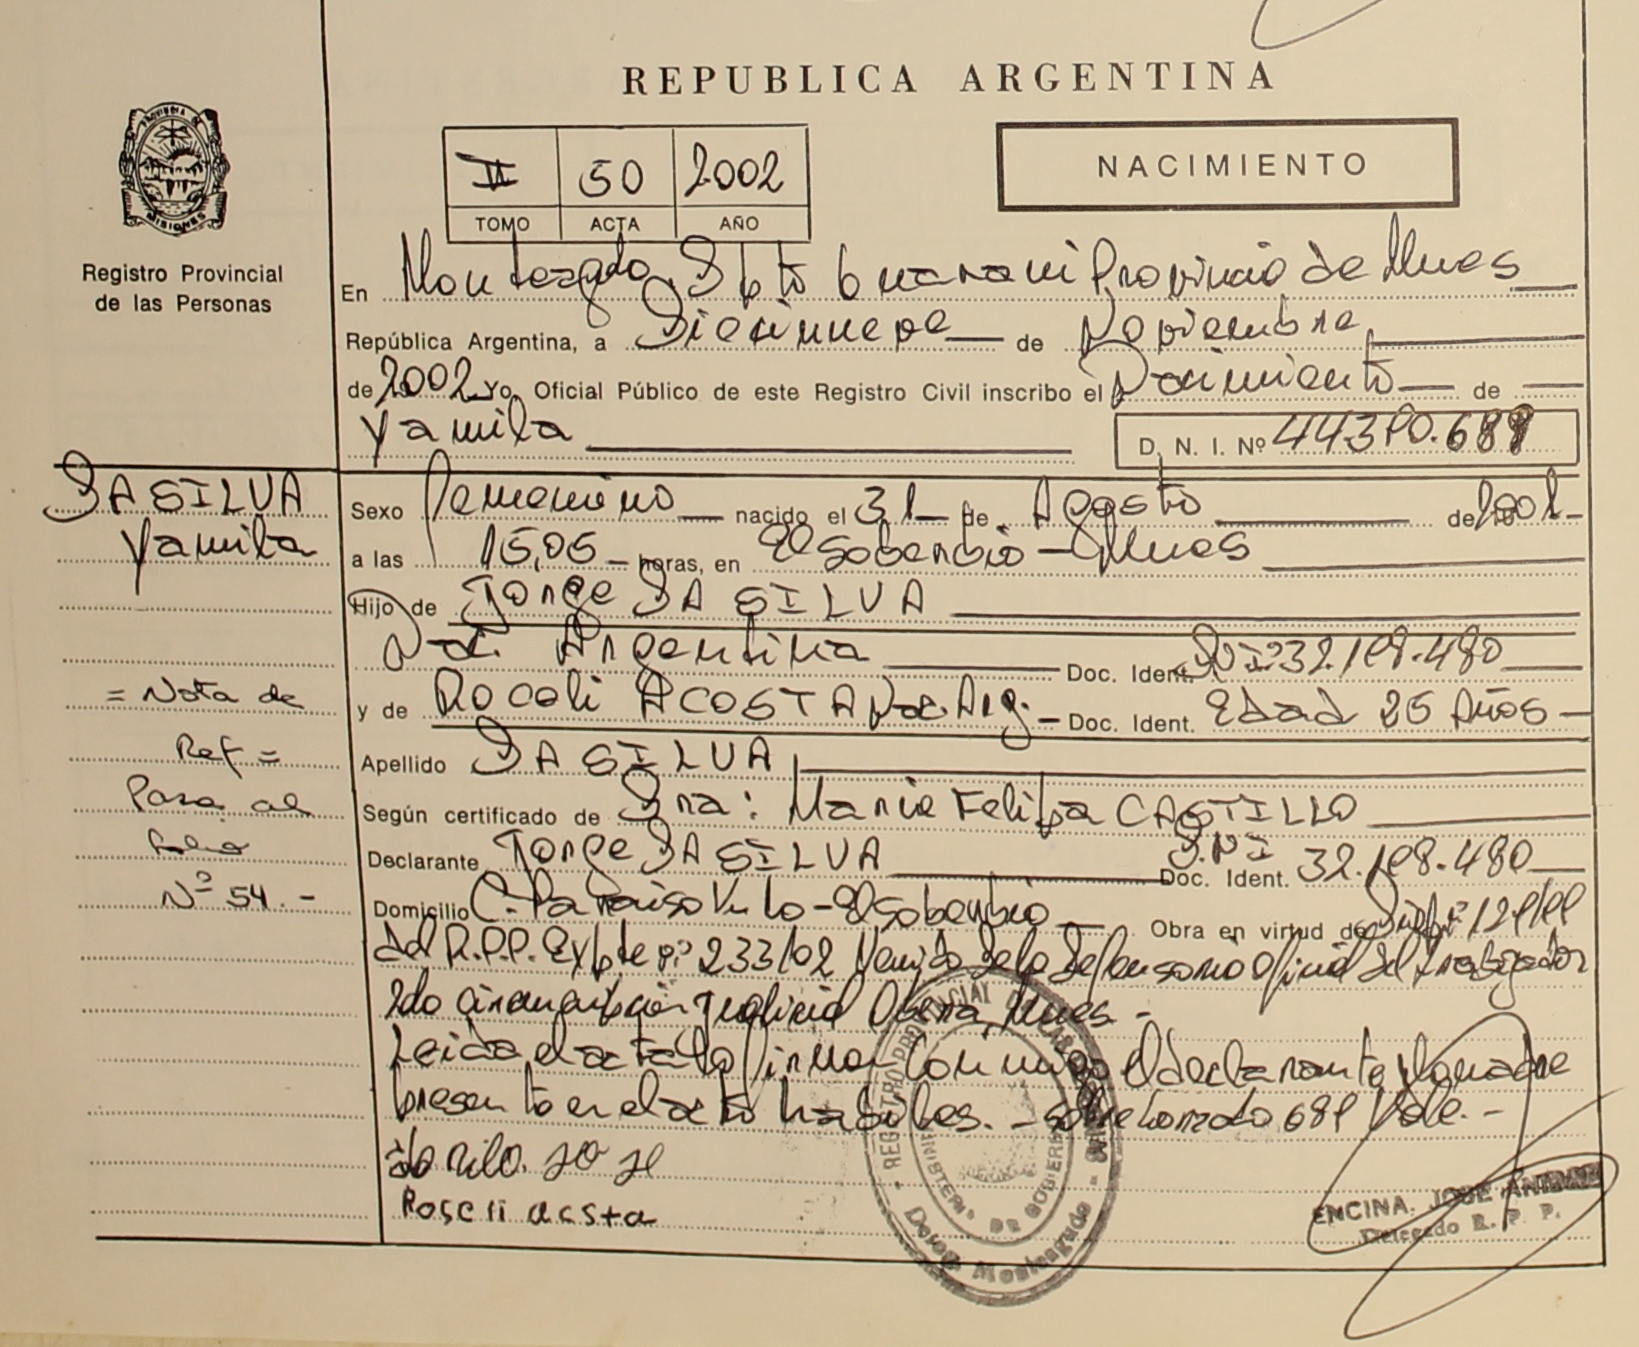 REPUBLICA ARGENTINA
PROVINCIA DE MISIONES
Registro Provincial
de las Personas
II 50 2002
TOMO ACTA AÑO
NACIMIENTO
En Monteagudo, Dpto Guarani Provincia de Mnes
República Argentina, a Diecinueve de Noviembre
de 2002 Yo, Oficial Público de este Registro Civil inscribo el Nacimiento de
Yamila
D. N. I. Nº
DA SILVA
Yamila
= Nota de
Ref =
Pasa al
folio
Nº 54.-
Sexo Femenino nacido el 31 de Agosto de
a las 15,05 horas, en El Soberbio - Mnes
Hijo de Jorge DA SILVA
Nac. Argentina Doc. Ident. DNIº 32.198.480
y de Roceli ACOSTA Nac. Arg. - Doc. Ident. Edad 25 Años -
Apellido DA SILVA
Según certificado de Sra: Maria Felipa CASTILLO
Declarante Jorge DA SILVA Doc. Ident. D.N.I 32.198.480
Domicilio C. Paraiso - El Soberbio Obra en virtud de
del R.P.P. Expte nº 233/02 de la Defensoria Oficial del Trabajador
2da Circunscripción Judicial Obera, Mnes -
Leida el acta la firman conmigo el declarante y la madre
presente en el acto habiles. - sobre borrado 689 Vale. -
Roseli acsta
REGISTRO PROVINCIAL DE LAS PERSONAS
MINISTERIO DE GOBIERNO
Deleg. Monteagudo
ENCINA, JOSE ANTONIO
Delegado R. P. P.